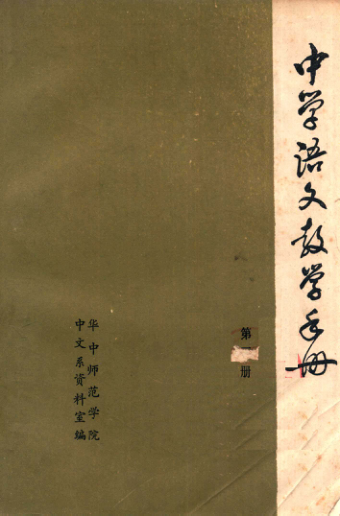 中学语文教学手册
第一册
华中师范学院
中文系资料室编